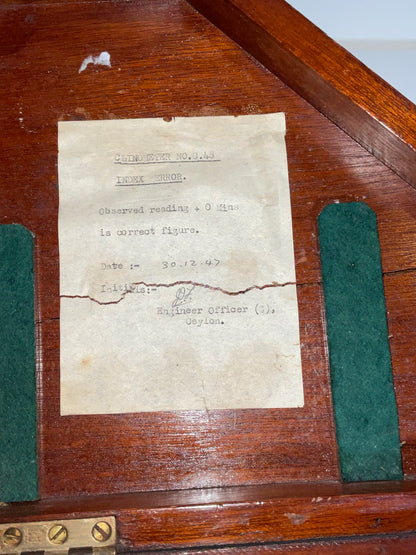 CLINOMETER NO.S.48
INDEX ERROR.
Observed reading + 0 Mins
is correct figure.
Date :- 30.12.47
Initials:-
Engineer Officer (G),
Ceylon.